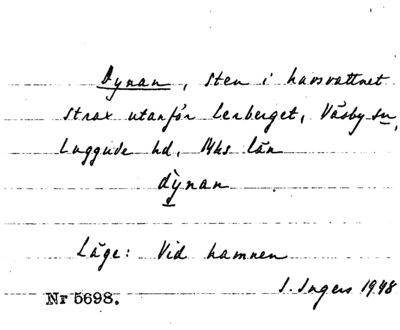 Dynan, sten i havsvattnet
strax utanför Lerberget, Väsby sn,
Luggude hd, Mhs län
dynan
Läge: Vid hamnen
I. Ingers 1948
Nr 5698.